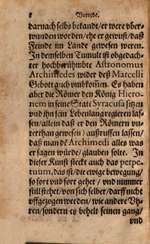 8 Vorrede.
darnach selbs befande/ er were vber-
wunden worden/ ehe er gewust/ daß
Feinde im Lande gewesen weren.
In demselben Tumult ist obgedach-
ter hochberühmbte Astronomus
Archimedes wider deß Marcelli
Gebott auch umbkommen. Es haben
aber die Römer den König Hiero-
nem in seine Stadt Syracusa sitzen
und ihn sein Lebenlang regieren las-
sen/ allein daß er den Römern un-
terthan gewesen/ außruffen lassen/
daß man de Archimedi alles was
er sagen würde/ glauben solte. In
dieser Kunst steckt auch das perpe-
tuum, das ist/ die ewige bewegung/
so fort und fort gehet/ und nimmer
still stehet/ von sich selber/ darff nicht
uffgezogen werden/ wie andere Vh-
ren/ sondern es behelt seinen gang/
und